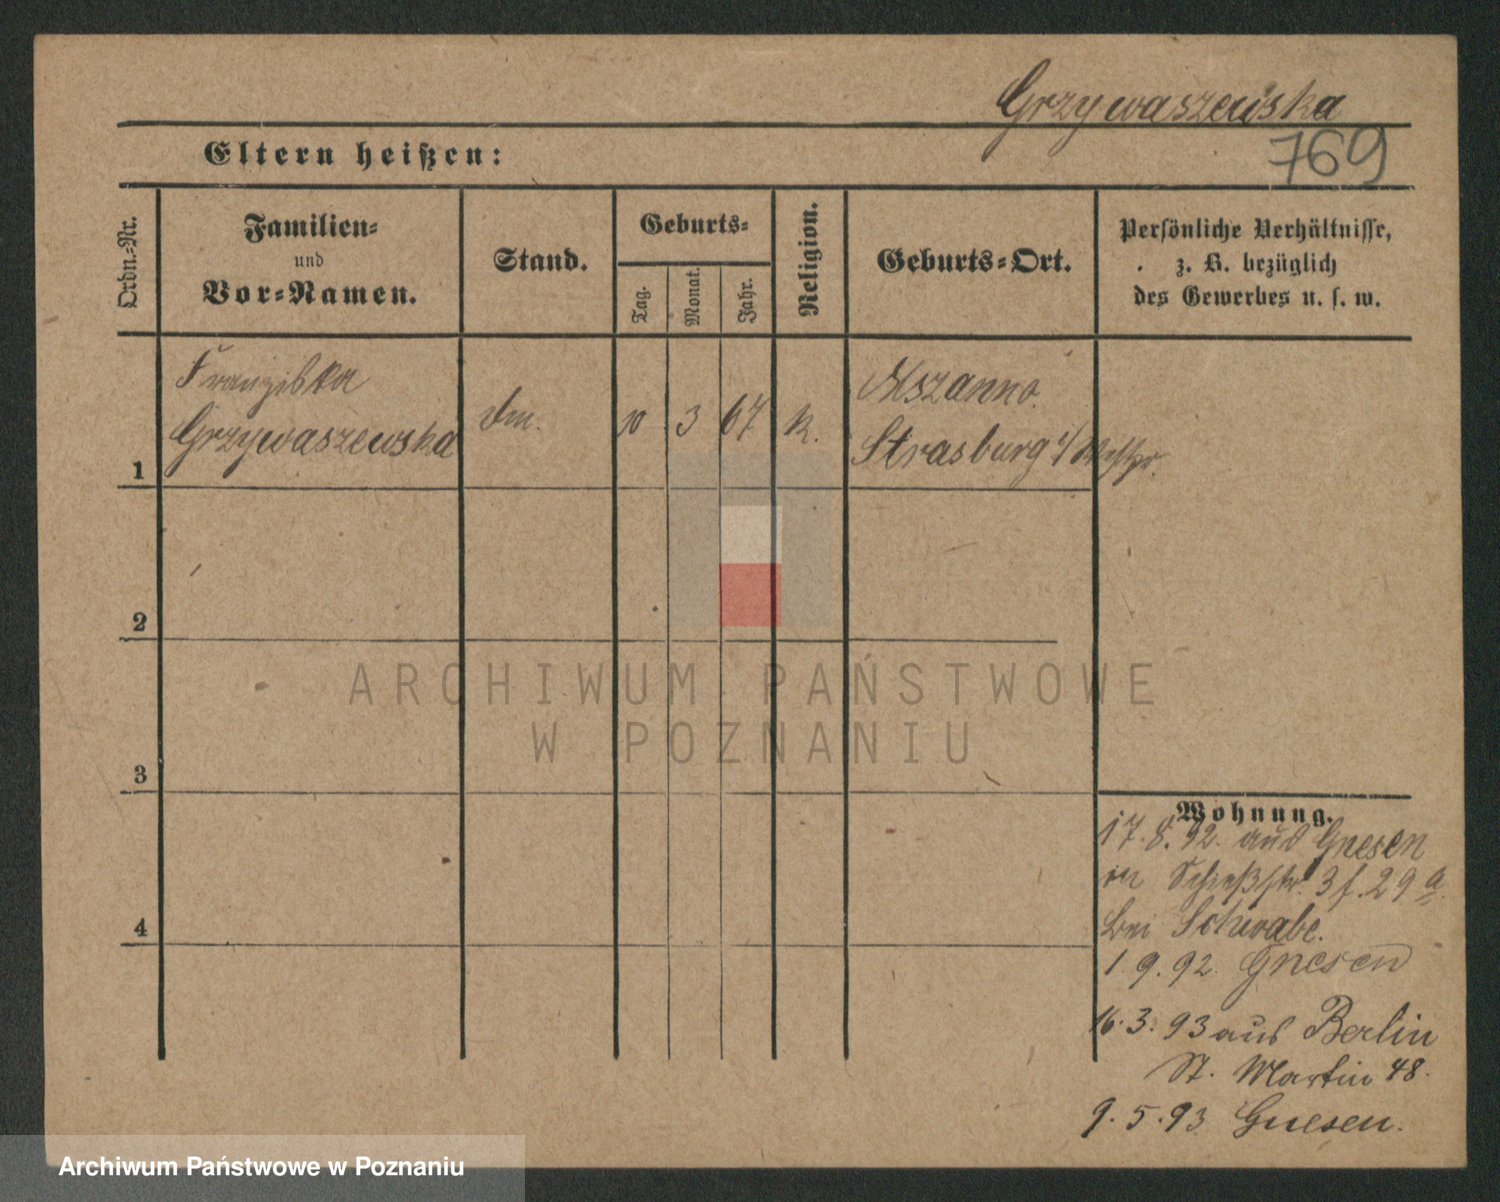 Grzywaszewska
769
Eltern heißen:
Ordn.-Nr.
Familien-
und
Vor-Namen.
Stand.
Geburts-
Tag.
Monat.
Jahr.
Religion.
Geburts-Ort.
Persönliche Verhältnisse,
z. B. bezüglich
des Gewerbes u. s. w.
1
Franziska
Grzywaszewska
10
3
67
k.
Mszanno
Strasburg i/Westpr.
2
3
4
Wohnung.
17.8.92. aus Gnesen
in Schießstr. 3 f. 29 a
bei Schwabe.
1.9.92. Gnesen
16.3.93 aus Berlin
St. Martin 48.
9.5.93 Gnesen.
ARCHIWUM PAŃSTWOWE
W POZNANIU
Archiwum Państwowe w Poznaniu